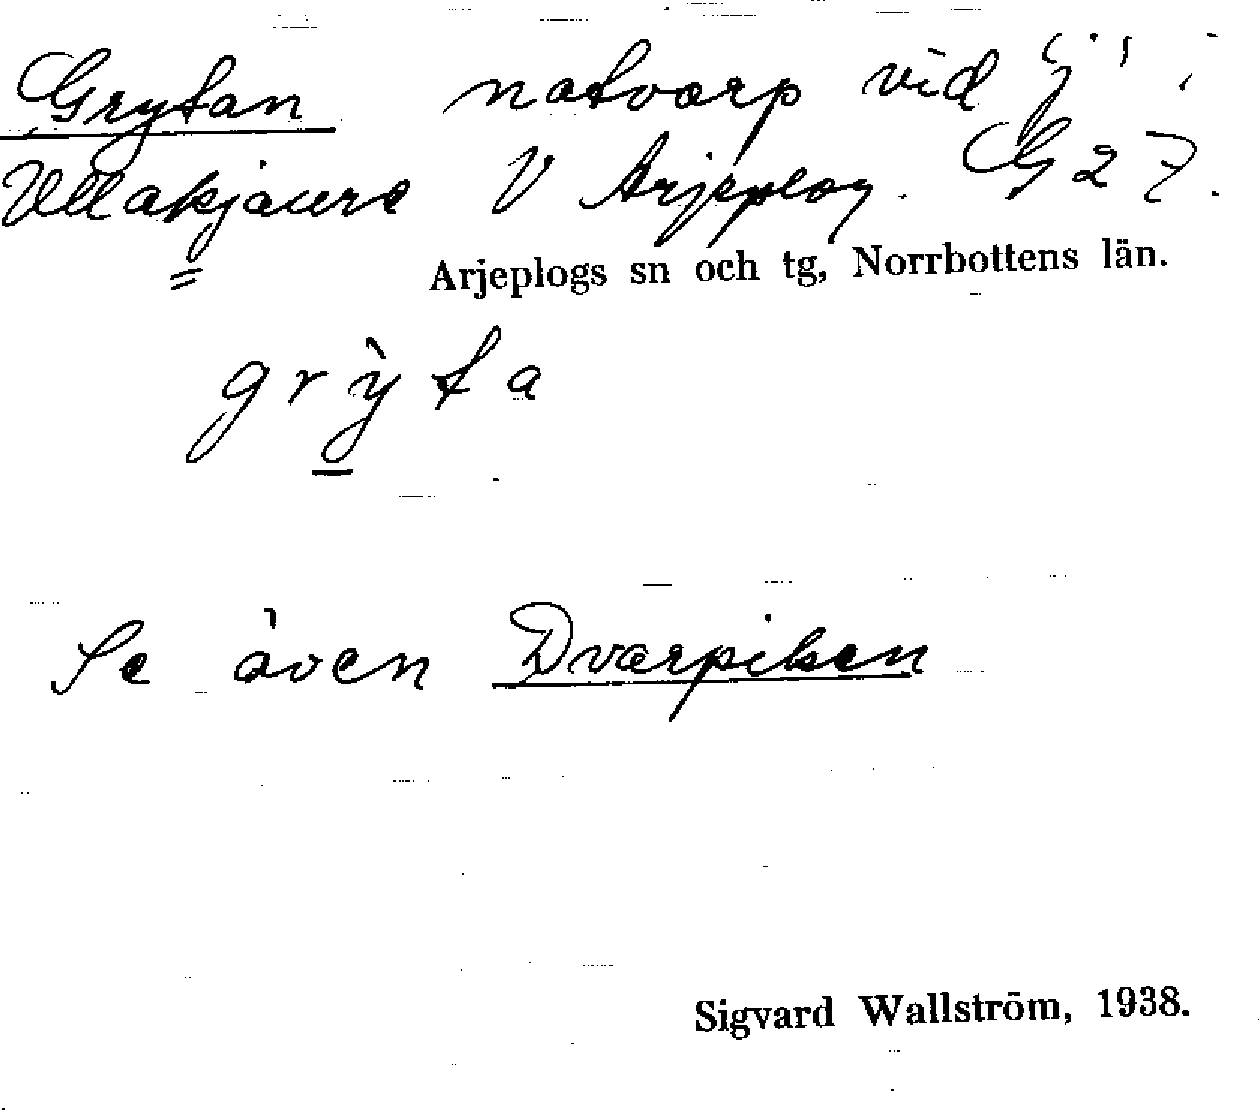 Grytan notvarp vid
Ullakjaure V Arjeplog. G 27.
Arjeplogs sn och tg, Norrbottens län.
grỳta
Se även Dvärpilsen
Sigvard Wallström, 1938.